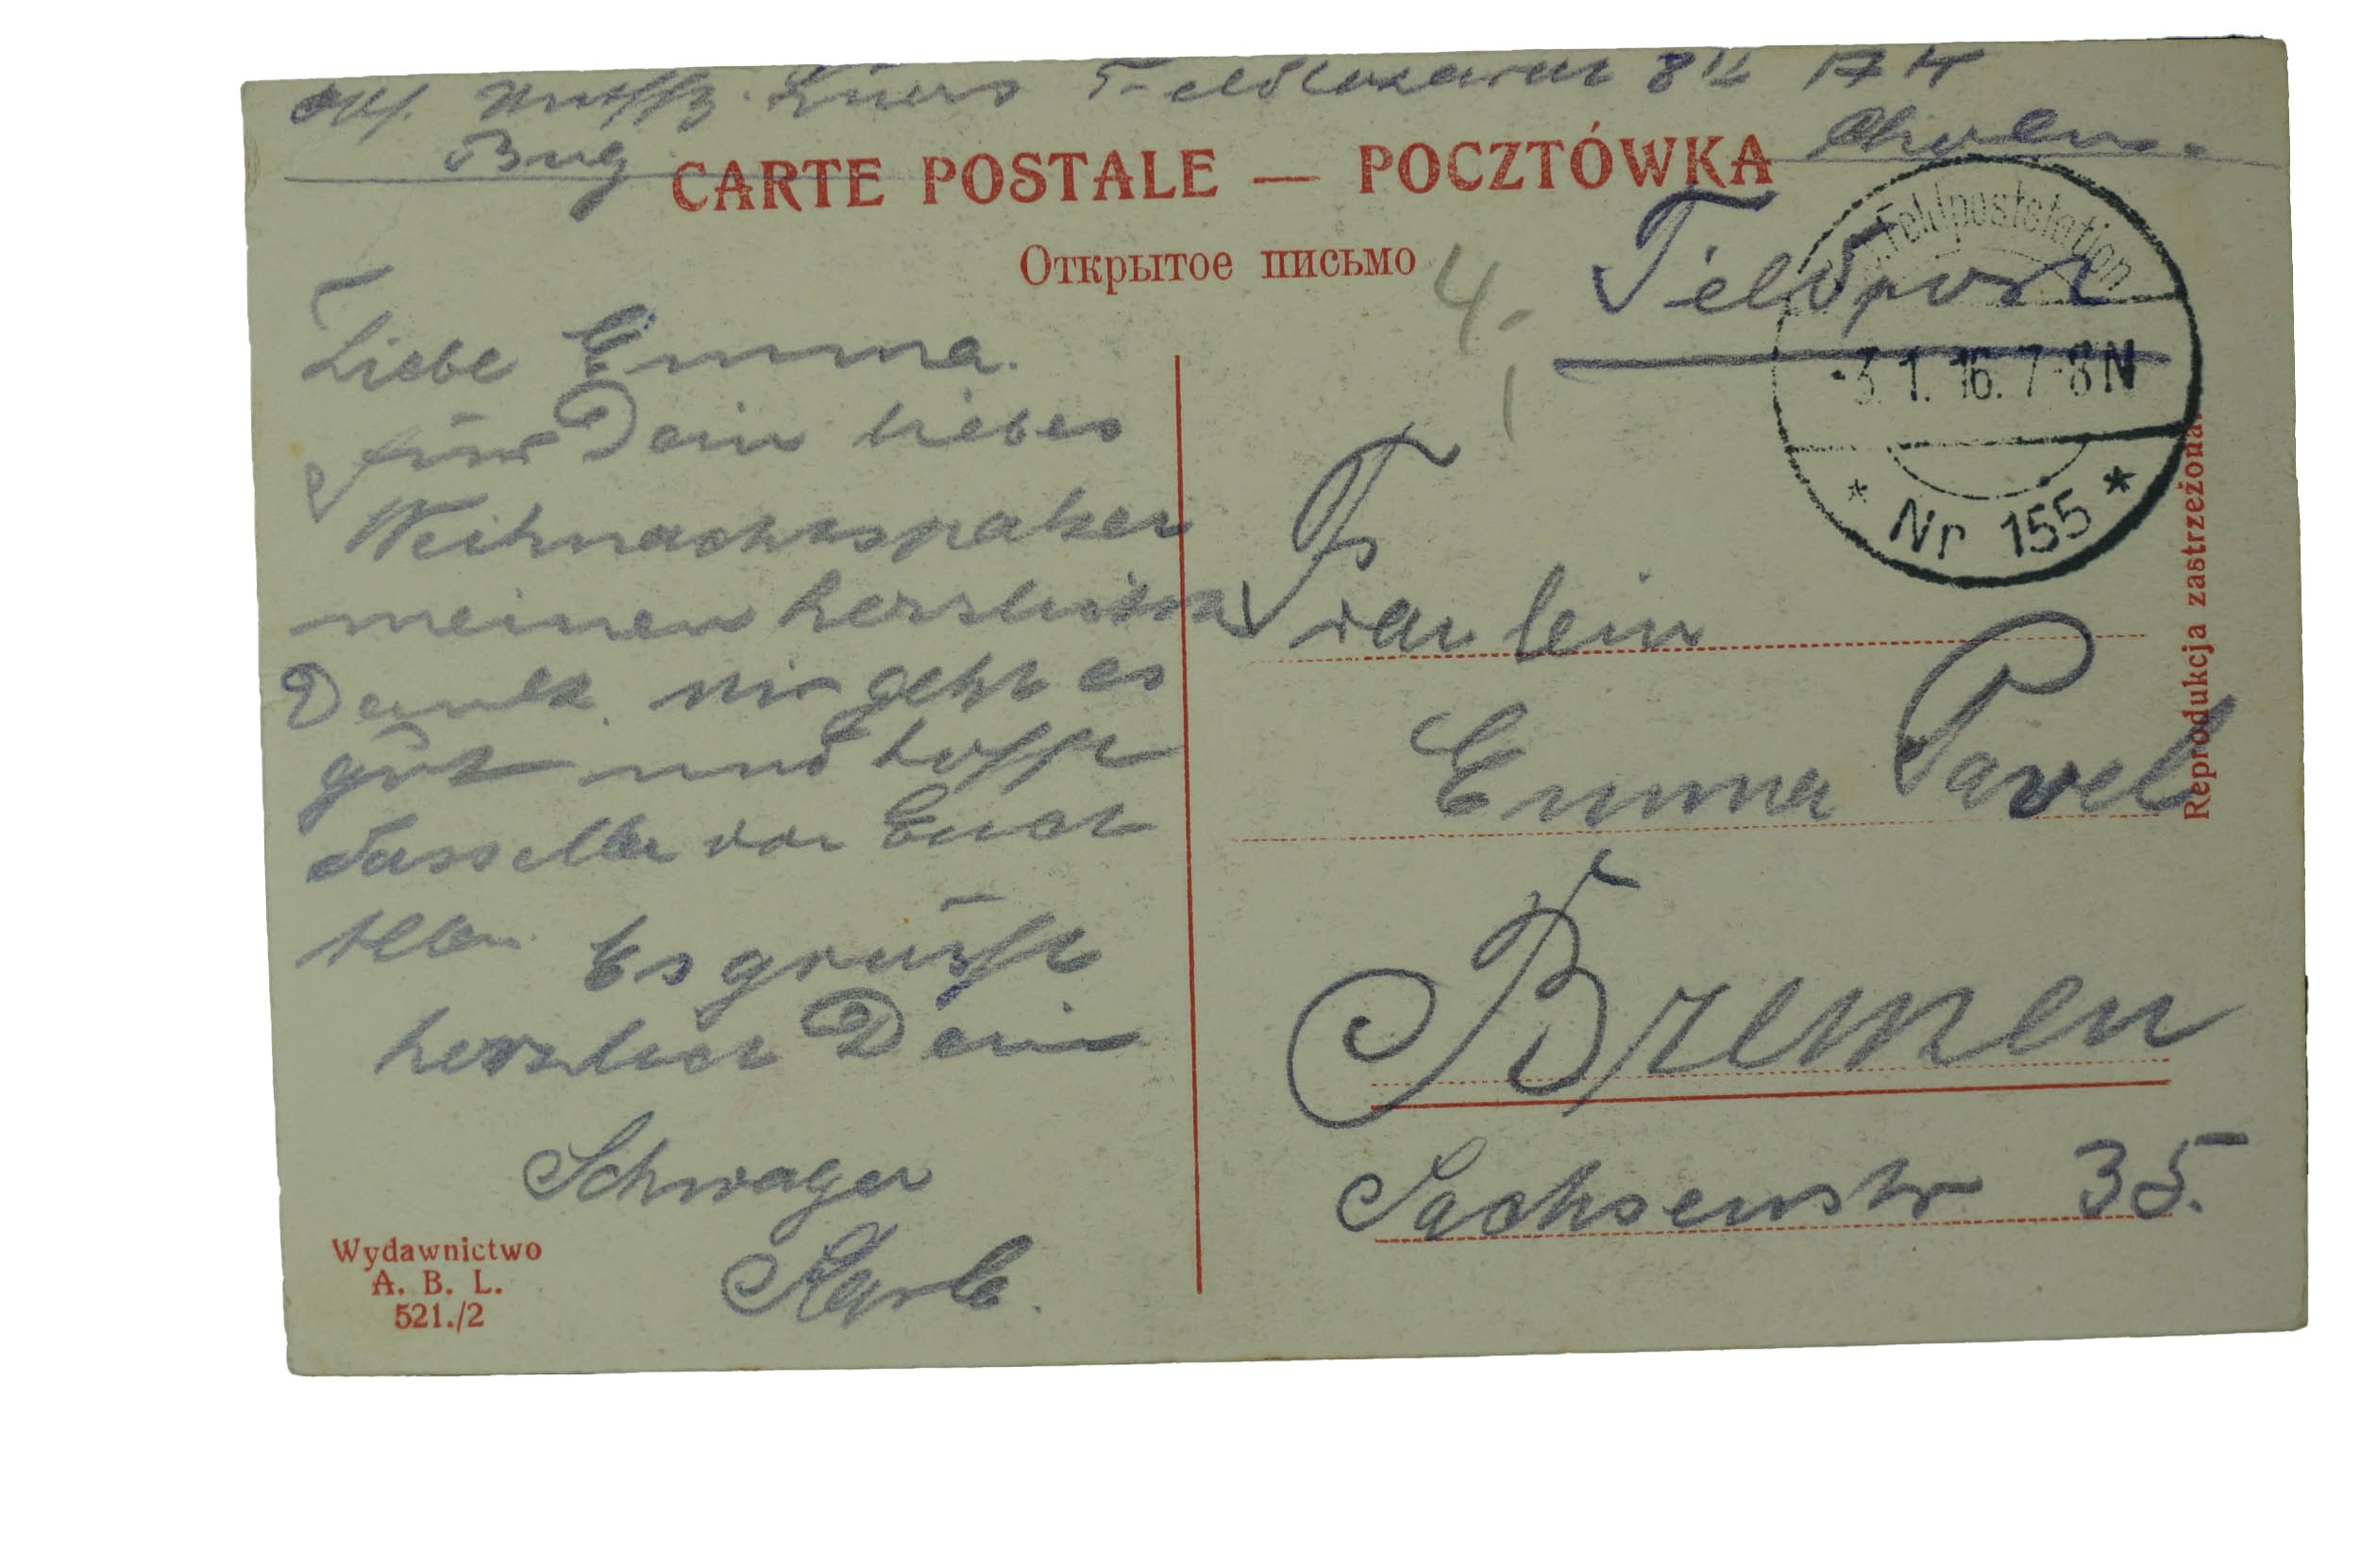 Bug
Cholm.
CARTE POSTALE — POCZTÓWKA
Открытое письмо
4,-
Feldpost
Feldpoststation
-3.1.16.7-8N
* Nr 155 *
Liebe Emma.
für Dein liebes
Weihnachtspaket
meinen herzlichsten
Dank. Mir geht es
gut und hoffe
dasselbe von Euch
Allen. Es grüßt
herzlich Dein
Schwager
Karl.
Fräulein
Emma Pavel
Bremen
Sachsenstr 35.
Reprodukcja zastrzeżona.
Wydawnictwo
A. B. L.
521./2